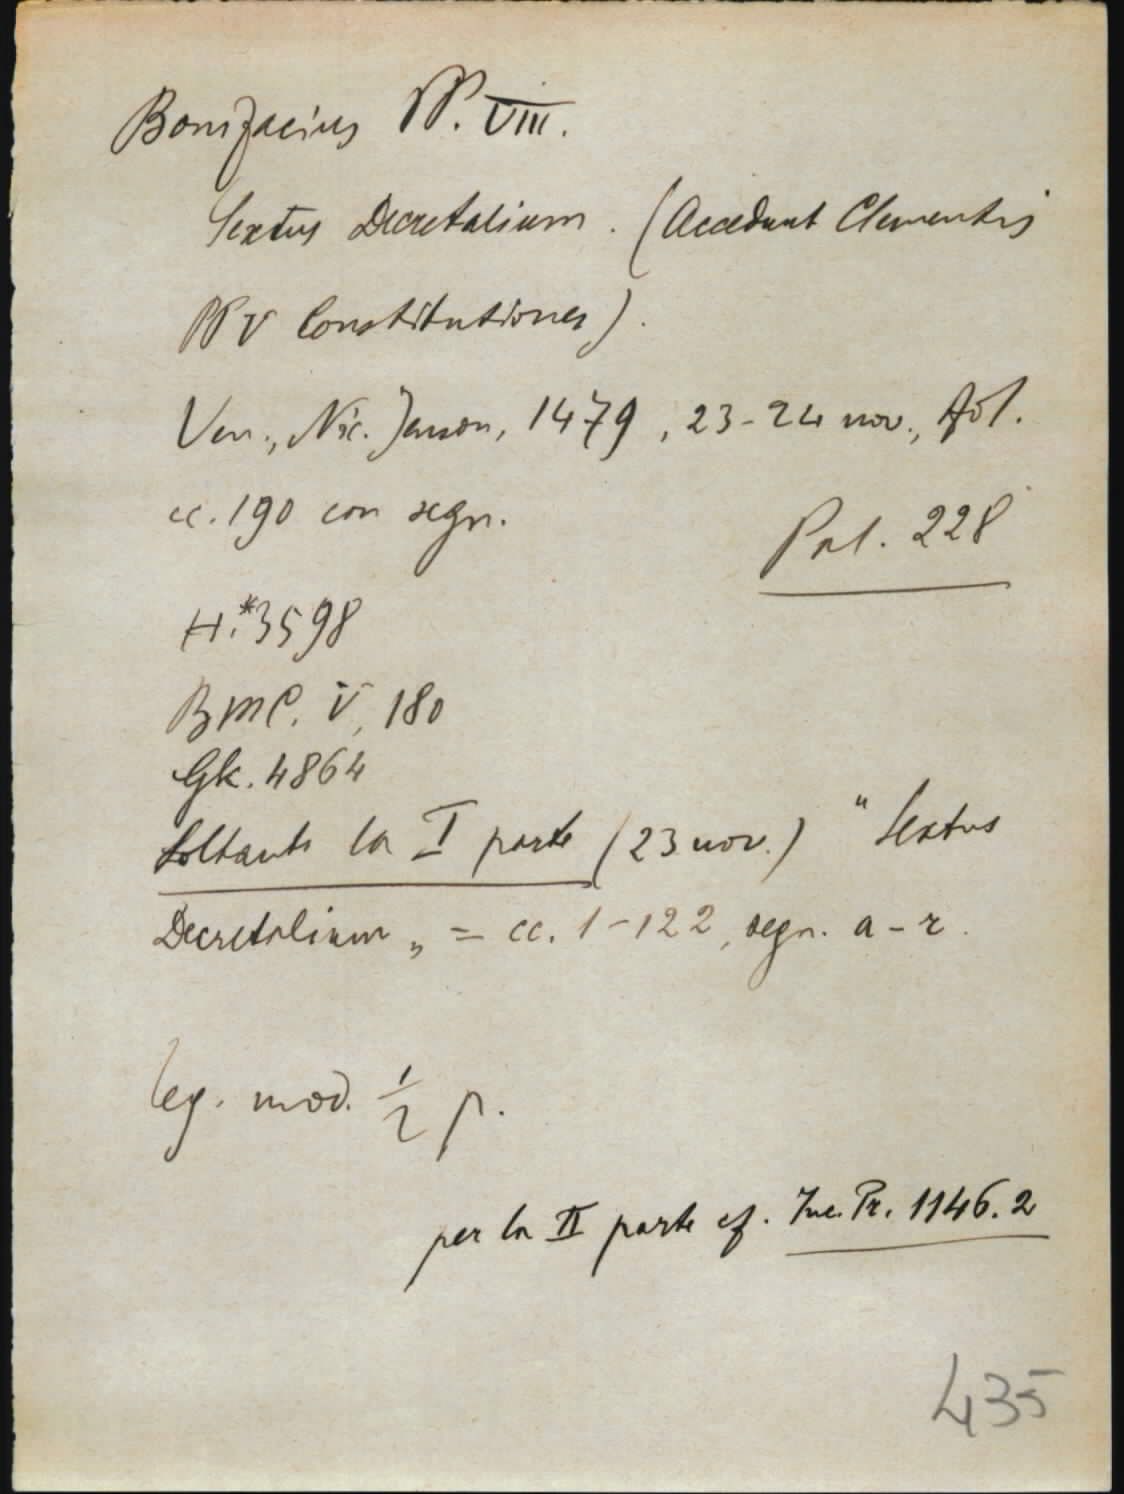 Bonifacius PP. VIII.
Sextus Decretalium. (Accedunt Clementis
PP V Constitutiones).
Ven., Nic. Jenson, 1479, 23-24 nov., fol.
cc. 190 con segn.
Pal. 228
H.*3598
BMC. V, 180
Gk. 4864
Soltanto la I parte (23 nov.) "Sextus
Decretalium„ = cc. 1-122, segn. a-r.
leg. mod. 1/2 p.
per la II parte cf. Inc. Pr. 1146.2
435